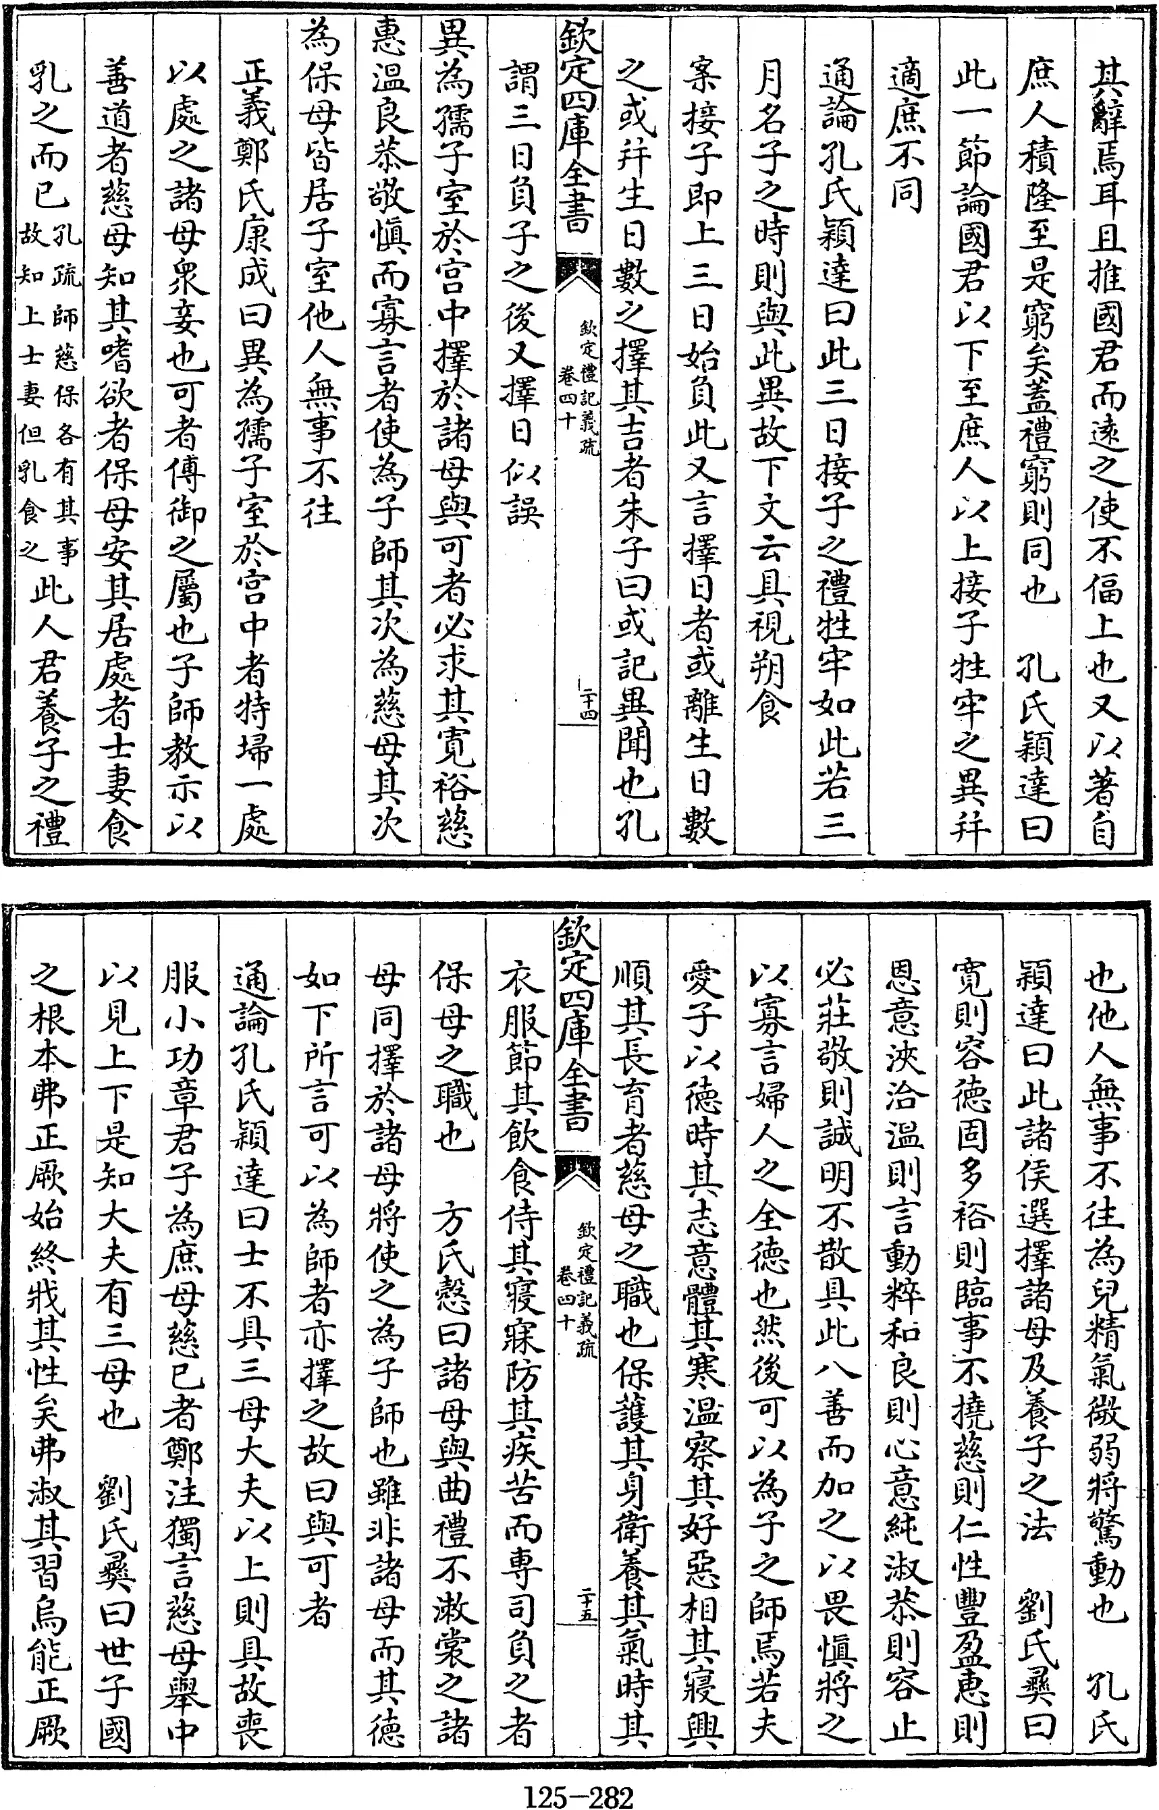 其辭焉耳且推國君而遠之使不偪上也又以著自
庶人積隆至是窮矣蓋禮窮則同也　孔氏穎達曰
此一節論國君以下至庶人以上接子牲牢之異并
適庶不同
通論孔氏穎達曰此三日接子之禮牲牢如此若三
月名子之時則與此異故下文云具視朔食
案接子即上三日始負此又言擇日者或離生日數
之或并生日數之擇其吉者朱子曰或記異聞也孔
欽定四庫全書
欽定禮記義疏
卷四十
二十四
謂三日負子之後又擇日似誤
異為孺子室於宮中擇於諸母與可者必求其寬裕慈
惠溫良恭敬慎而寡言者使為子師其次為慈母其次
為保母皆居子室他人無事不往
正義鄭氏康成曰異為孺子室於宮中者特埽一處
以處之諸母衆妾也可者傅御之屬也子師教示以
善道者慈母知其嗜欲者保母安其居處者士妻食
乳之而已孔疏師慈保各有其事故知上士妻但乳食之此人君養子之禮
也他人無事不往為兒精氣微弱將驚動也　孔氏
穎達曰此諸侯選擇諸母及養子之法　劉氏彝曰
寬則容德固多裕則臨事不撓慈則仁性豐盈惠則
恩意浹洽溫則言動粹和良則心意純淑恭則容止
必莊敬則誠明不散具此八善而加之以畏慎將之
以寡言婦人之全德也然後可以為子之師焉若夫
愛子以德時其志意體其寒溫察其好惡相其寢興
順其長育者慈母之職也保護其身衛養其氣時其
欽定四庫全書
欽定禮記義疏
卷四十
二十五
衣服節其飲食侍其寢寐防其疾苦而專司負之者
保母之職也　方氏慤曰諸母與曲禮不漱裳之諸
母同擇於諸母將使之為子師也雖非諸母而其德
如下所言可以為師者亦擇之故曰與可者
通論孔氏穎達曰士不具三母大夫以上則具故喪
服小功章君子為庶母慈已者鄭注獨言慈母舉中
以見上下是知大夫有三母也　劉氏彝曰世子國
之根本弗正厥始終戕其性矣弗淑其習烏能正厥
125-282